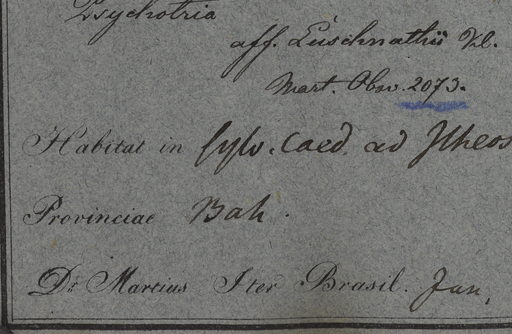 Psychotria
aff. Luschnathii Kl.
Mart. Obsv. 2073.
Habitat in sylv. Caed. ad Ilheos
Provinciae Bah.
Dr. Martius Iter Brasil. Jan.